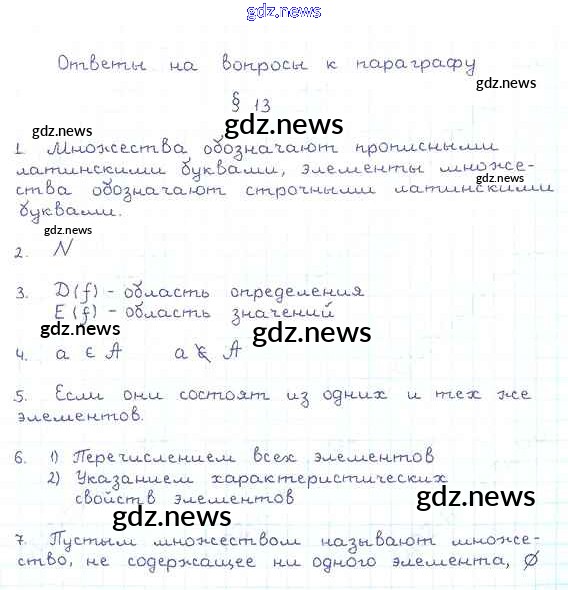 gdz.news
Ответы на вопросы к параграфу
gdz.news
§ 13
gdz.news
gdz.news
1 Множества обозначают прописными
латинскими буквами, элементы множе-
gdz.news
ства обозначают строчными латинскими
буквами.
gdz.news
2. N
3. D(f) - область определения
E(f) - область значений
gdz.news
gdz.news
4. a ∈ A a ∉ A
5. Если они состоят из одних и тех же
элементов.
6. 1) Перечислением всех элементов
2) Указанием характеристических
свойств элементов
gdz.news
gdz.news
7. Пустым множеством называют множе-
ство, не содержащее ни одного элемента, ∅